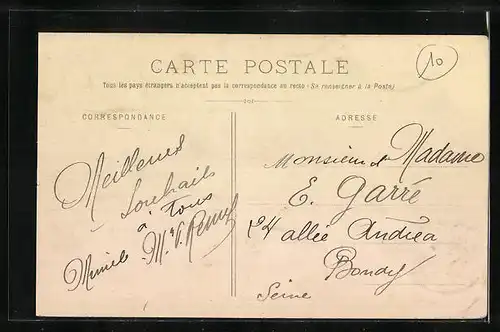 10
CARTE POSTALE
Tous les pays étrangers n'acceptent pas la correspondance au recto (Se renseigner à la Poste)
CORRESPONDANCE
ADRESSE
Meilleurs
Souhaits
à Tous
Monsieur et Madame
E. Garré
24 allée Andréa
Bondy
Seine